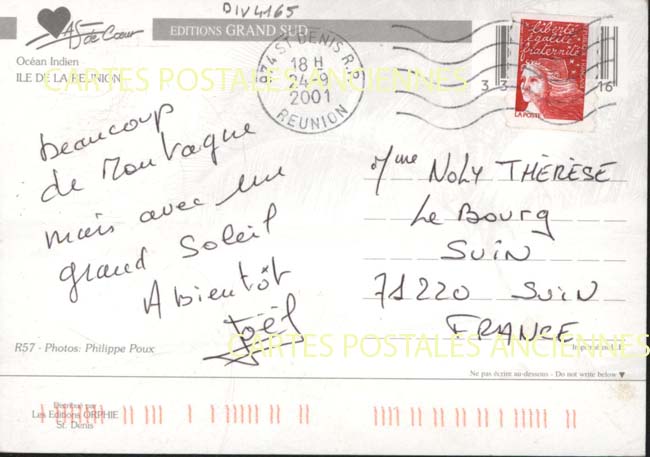 DIV4165
As de Cœur
EDITIONS GRAND SUD
Océan Indien
ILE DE LA REUNION
974 ST DENIS R.P.
18 H
24-9
2001
REUNION
liberté
égalité
fraternité
LA POSTE
16
CARTES POSTALES ANCIENNES
beaucoup
de Montagne
mais avec un
grand Soleil
A bientôt
Joël
Mme NOLY THÉRÈSE
Le Bourg
SUIN
71220 SUIN
FRANCE
R57 - Photos: Philippe Poux
CARTES POSTALES ANCIENNES
Imprimé en U.E.
Ne pas écrire au-dessous - Do not write below
Distribué par
Les Editions ORPHIE
St. Denis